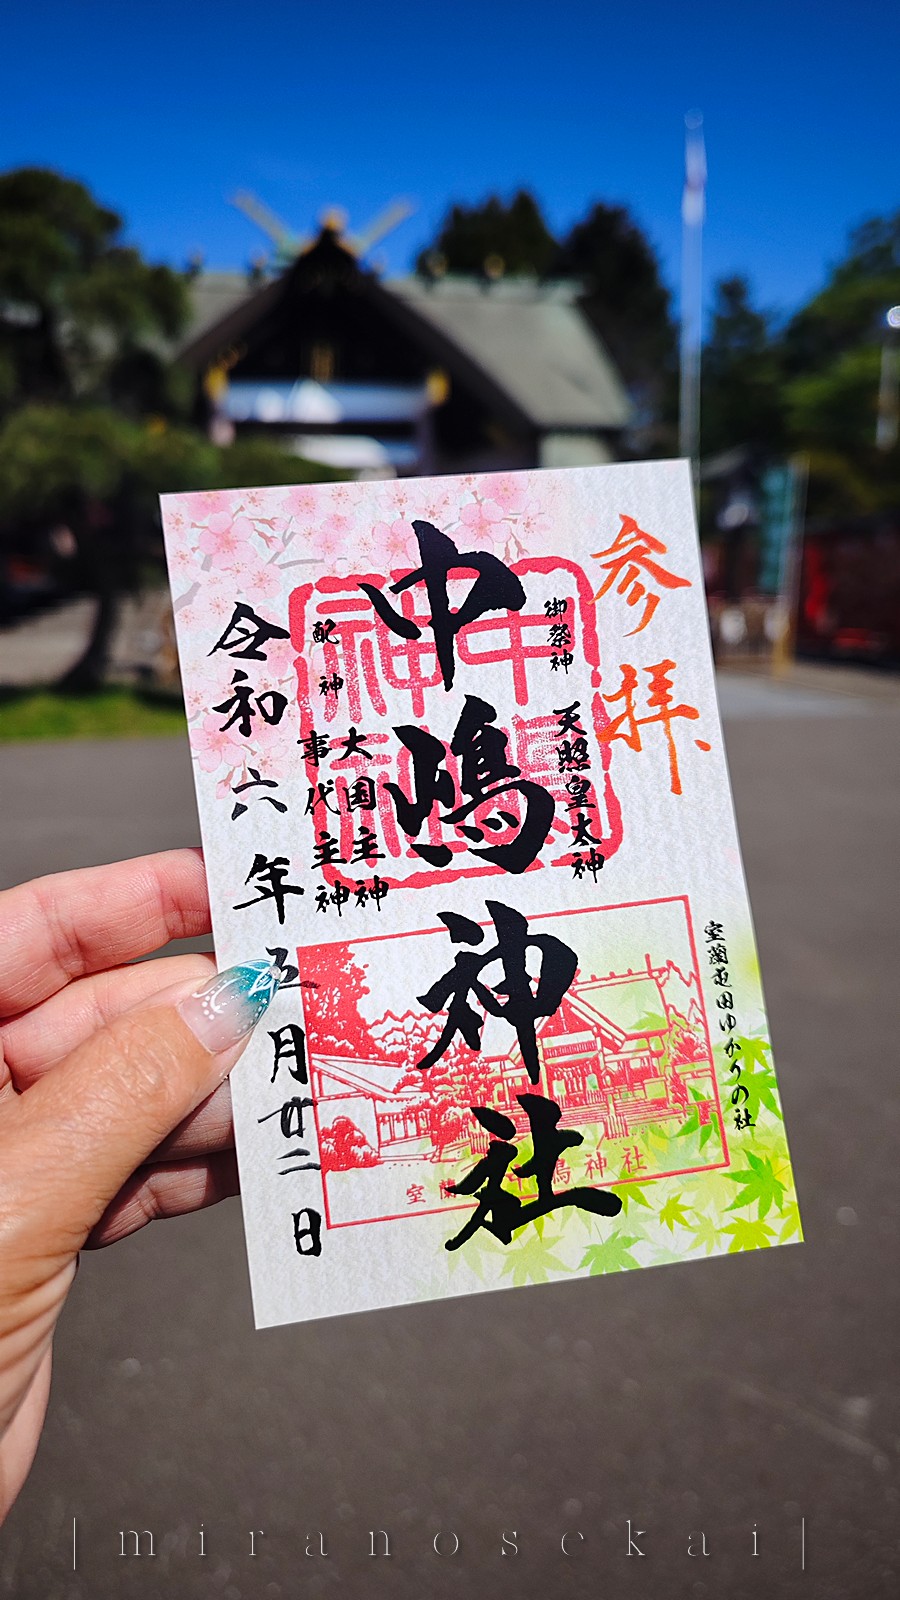 参拝
室蘭屯田ゆかりの社
御祭神 天照皇太神
中嶋神社
配神
大国主神
事代主神
令和六年五月廿二日
中嶋神社
室蘭 中嶋神社
| miranosekai |